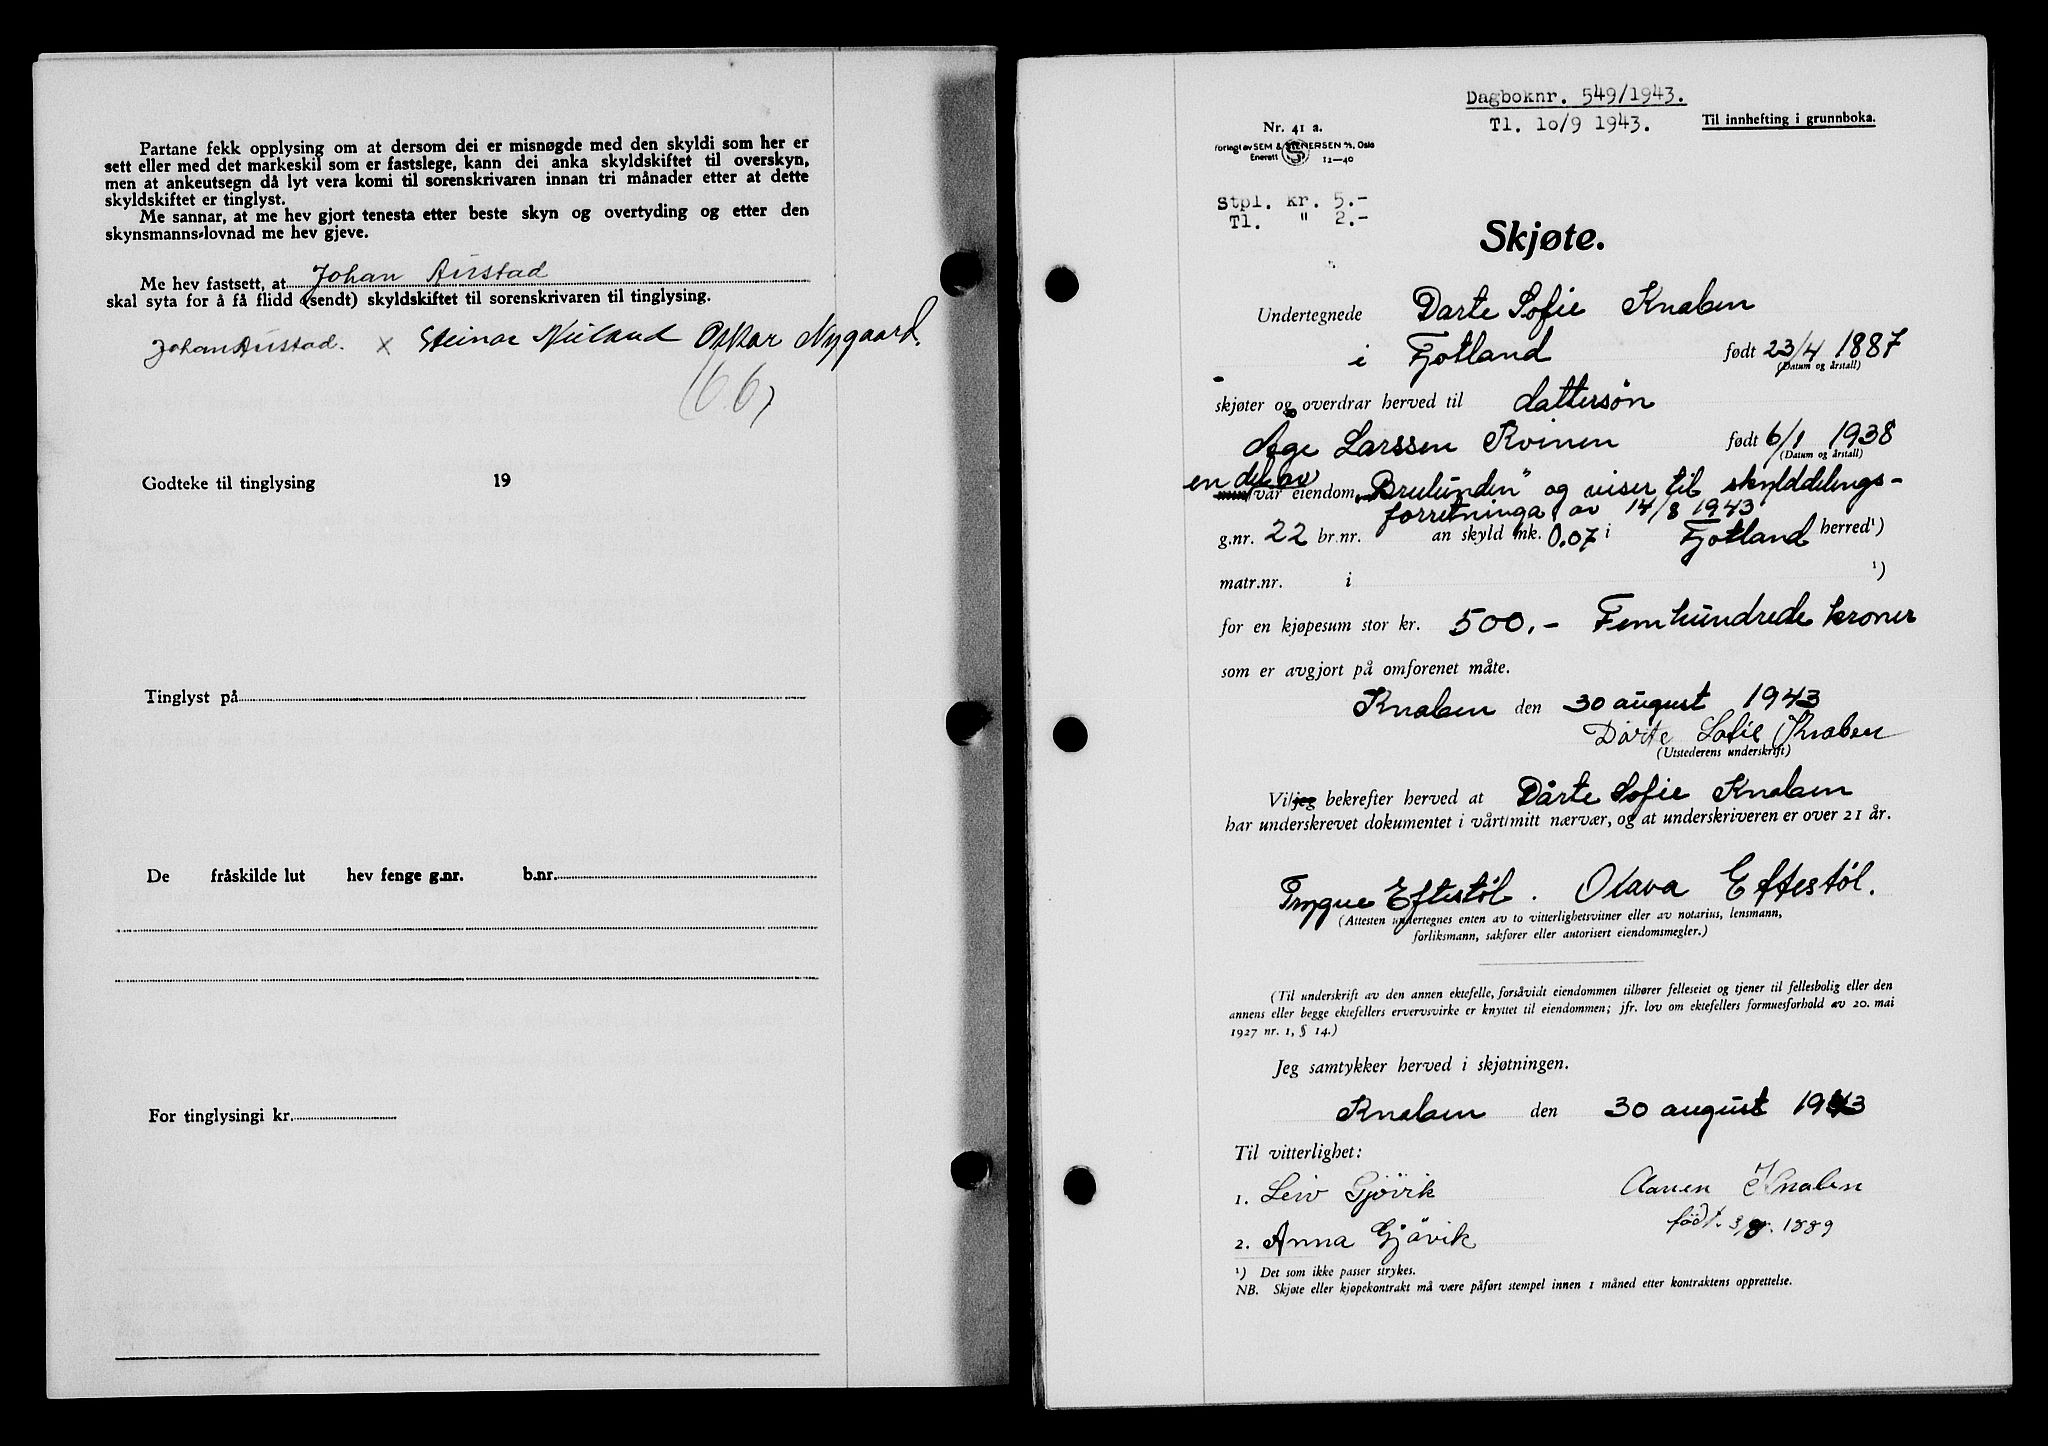 Partane fekk opplysing om at dersom dei er misnøgde med den skyldi som her er
sett eller med det markeskil som er fastslege, kann dei anka skyldskiftet til overskyn,
men at ankeutsegn då lyt vera komi til sorenskrivaren innan tri månader etter at dette
skyldskiftet er tinglyst.
Me sannar, at me hev gjort tenesta etter beste skyn og overtyding og etter den
skynsmanns-lovnad me hev gjeve.
Me hev fastsett, at Johan Aurstad
skal syta for å få flidd (sendt) skyldskiftet til sorenskrivaren til tinglysing.
Johan Aurstad. x Steinar Oskar Nygaard.
Godteke til tinglysing 19
Tinglyst på
De fråskilde lut hev fenge g.nr. b.nr.
For tinglysingi kr.
Dagboknr. 549/1943.
Tl. 10/9 1943.
Til innhefting i grunnboka.
Nr. 41 a.
Forlagt av SEM & STENERSEN A/S, Oslo
Enerett S 12—40
Stpl. kr. 5.-
Tl. " 2.-
Skjøte.
Undertegnede Dårte Sofie Knaben
i Fjotland født 23/4 1887
(Datum og årstall)
skjøter og overdrar herved til dattersøn
Åge Larssen Kvinen født 6/1 1938
(Datum og årstall)
en del av
min/vår eiendom „Brulunden" og viser til skylddelings-
forretninga av 14/8 1943
g.nr. 22 br.nr. an skyld mk. 0.07 i Fjotland herred¹)
matr.nr. i ¹)
for en kjøpesum stor kr. 500.- Femhundrede kroner
som er avgjort på omforenet måte.
Knaben den 30 august 1943
Dårte Sofie Knaben
(Utstederens underskrift)
Vi/jeg bekrefter herved at Dårte Sofie Knaben
har underskrevet dokumentet i vårt/mitt nærvær, og at underskriveren er over 21 år.
Trygve Eftestøl. Olava Eftestøl.
(Attesten undertegnes enten av to vitterlighetsvitner eller av notarius, lensmann,
forliksmann, sakfører eller autorisert eiendomsmegler.)
(Til underskrift av den annen ektefelle, forsåvidt eiendommen tilhører felleseiet og tjener til fellesbolig eller den
annens eller begge ektefellers ervervsvirke er knyttet til eiendommen; jfr. lov om ektefellers formuesforhold av 20. mai
1927 nr. 1, § 14.)
Jeg samtykker herved i skjøtningen.
Knaben den 30 august 1943
Til vitterlighet:
1. Leiv Gjövik Aanen Knaben
født. 3/8. 1889
2. Anna Gjövik
¹) Det som ikke passer strykes.
NB. Skjøte eller kjøpekontrakt må være påført stempel innen 1 måned etter kontraktens opprettelse.